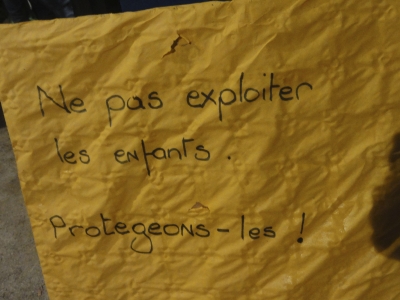 Ne pas exploiter
les enfants.
Protegeons-les !